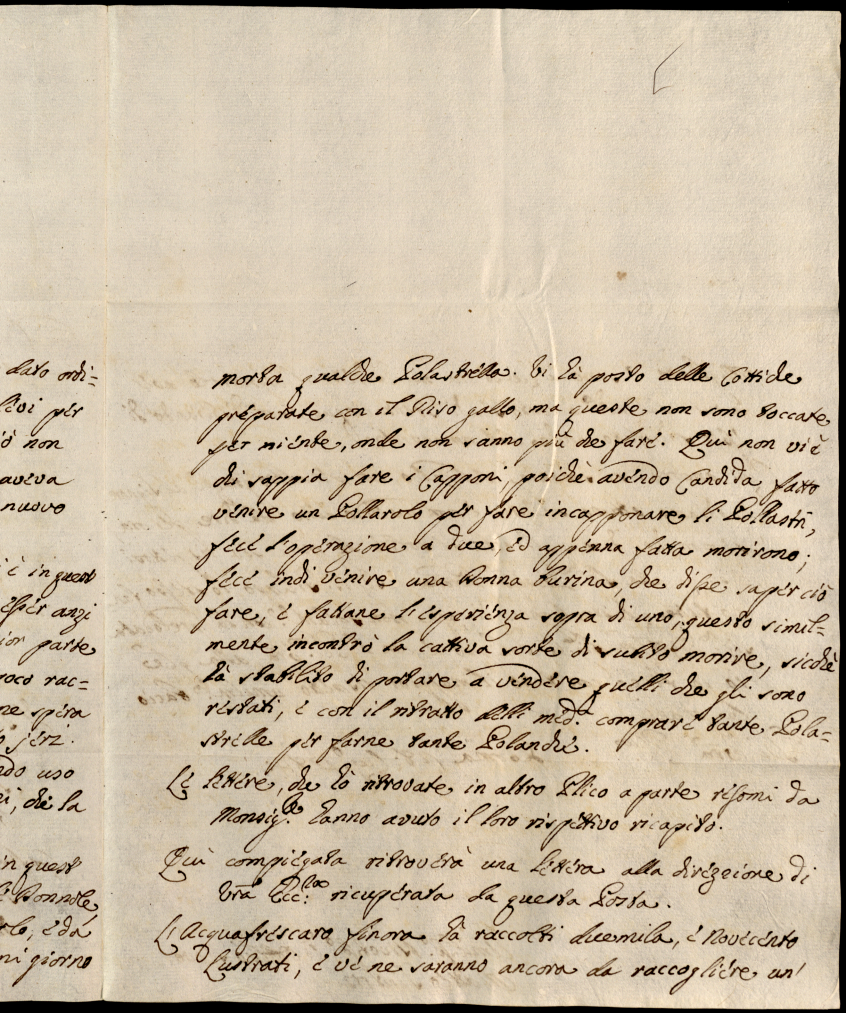 dato ordi=
levi per
ò non
aveva
nuovo
i è in questo
esser anzi
ior parte
poco rac=
ne spera
jeri.
ndo uso
ni, che la
in quest
Donnole
rlo, è da
ni giorno
morta qualche Polastrella. Vi hà posto delle Cottiche
préparate con il Riso gallo, ma queste non sono toccate
per niente, onde non sanno più che fare. Quì non vi è
chi sappia fare i Capponi, poichè avendo Candida fatto
venire un Pollarolo per fare incapponare li Pollastri,
fece l'operazione a due, ed appenna fatta morirono;
fece indi venire una Donna burina, che disse saper ciò
fare, è fattane l'esperienza sopra di uno, questo simil=
mente incontrò la cattiva sorte di subito morire, sicchè
hà stabilito di portare a vendere quelli che gli sono
restati, è con il ritratto delli med.i comprare tante Pola=
strelle per farne tante Polanche.
Le lettere, che hò ritrovate in altro Plico a parte resomi da
Monsig.re hanno avuto il loro rispettivo ricapito.
Quì compiegata ritroverà una lettera alla direzzione di
Vrã Ecc:za ricuperata da questa Posta.
L'Acquafrescaro finora hà raccolti duemila, è Novecento
Lustrati, è ve ne saranno ancora da raccogliere un'